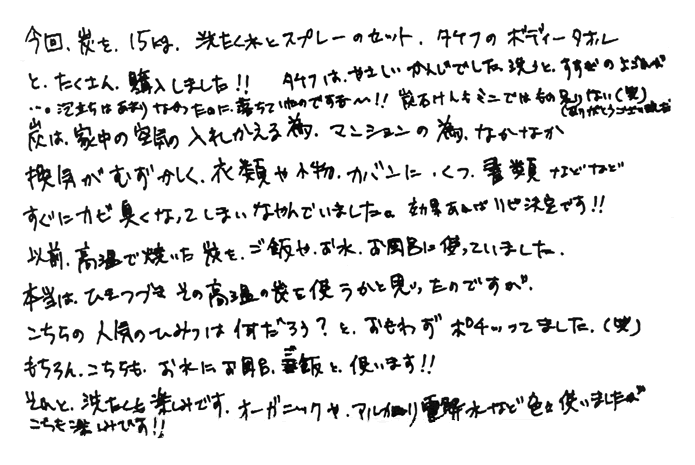 今回、炭を、15kg、洗たく水とスプレーのセット、タケフのボディータオル
と、たくさん、購入しました!! タケフは、やさしいかんじでした。洗うと、すすぎのよごれが
…。泡立ちはあまりなかったのに、落ちているのですね〜!! 炭石けんもミニではもの足りない(笑)
(ありがとうございました)
炭は、家中の空気の入れかえる為、マンションの為、なかなか
換気がむずかしく、衣類や小物、カバンに、くつ、書類などなど
すぐにカビ臭くなってしまいなやんでいました。効果あればリピ決定です!!
以前、高温で焼いた炭を、ご飯や、お水、お風呂に使っていました。
本当は、ひきつづきその高温の炭を使うかと思ったのですが、
こちらの人気のひみつは何だろう?と、おもわずポチッってました。(笑)
もちろん、こちらも、お水にお風呂、ご飯と、使います!!
それと、洗たくも楽しみです。オーガニックや、アルカリ電解水など色々使いましたが
こちも楽しみです!!